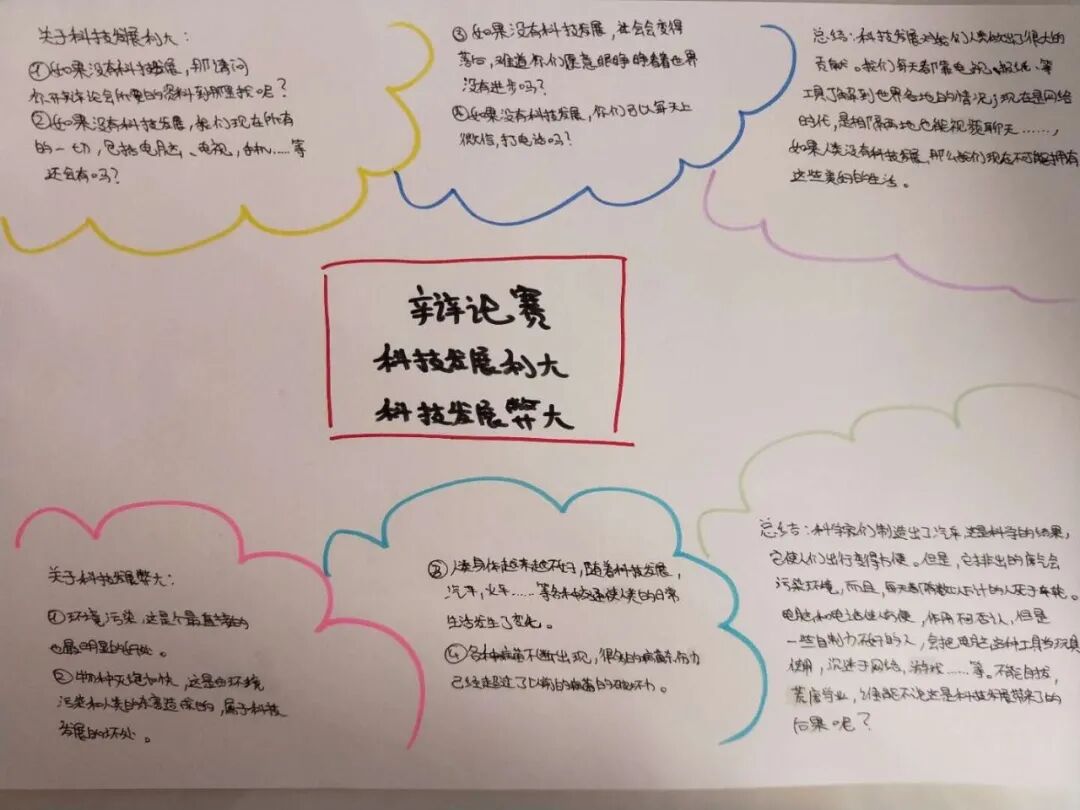 关于科技发展利大：
①如果没有科技发展，那请问
你开辩论会所要的资料到那里找呢？
②如果没有科技发展，我们现在所有
的一切，包括电脑、电视，手机……等
还会有吗？
③如果没有科技发展，社会会变得
落后，难道你们愿意眼睁睁看着世界
没有进步吗？
④如果没有科技发展，你们可以每天上
微信，打电话吗？
总结：科技发展对我们人类做出了很大的
贡献。我们每天都靠电视、报纸、等
工具了解到世界各地上的情况；现在是网络
时代，是相隔两地也能视频聊天……，
如果人类没有科技发展，那么我们现在不可能拥有
这些美好的生活。
辩论赛
科技发展利大
科技发展弊大
关于科技发展弊大：
①环境污染，这是个最直接的
也最明显的好处。
②物种灭绝加快，这是由环境
污染和人类的杀害造成的，属于科技
发展的坏处。
③人类身体越来越不好，随着科技发展，
汽车，火车……等各种交通使人类的日常
生活发生了变化。
④各种病菌不断出现，很多的病菌杀伤力
已经超过了以前的病菌的破坏力。
总结：科学家们制造出了汽车，这是科学的结果，
它使人们出行变得方便。但是，它排出的废气会
污染环境，而且，每天都有数以万计的人死于车轮。
电脑和电话使人方便，作用不否认，但是
一些自制力不好的人，会把电脑这种工具当玩具
使用，沉迷于网络，游戏……等。不能自拔，
荒废学业，谁能不说这是科技发展带来了的
后果呢？